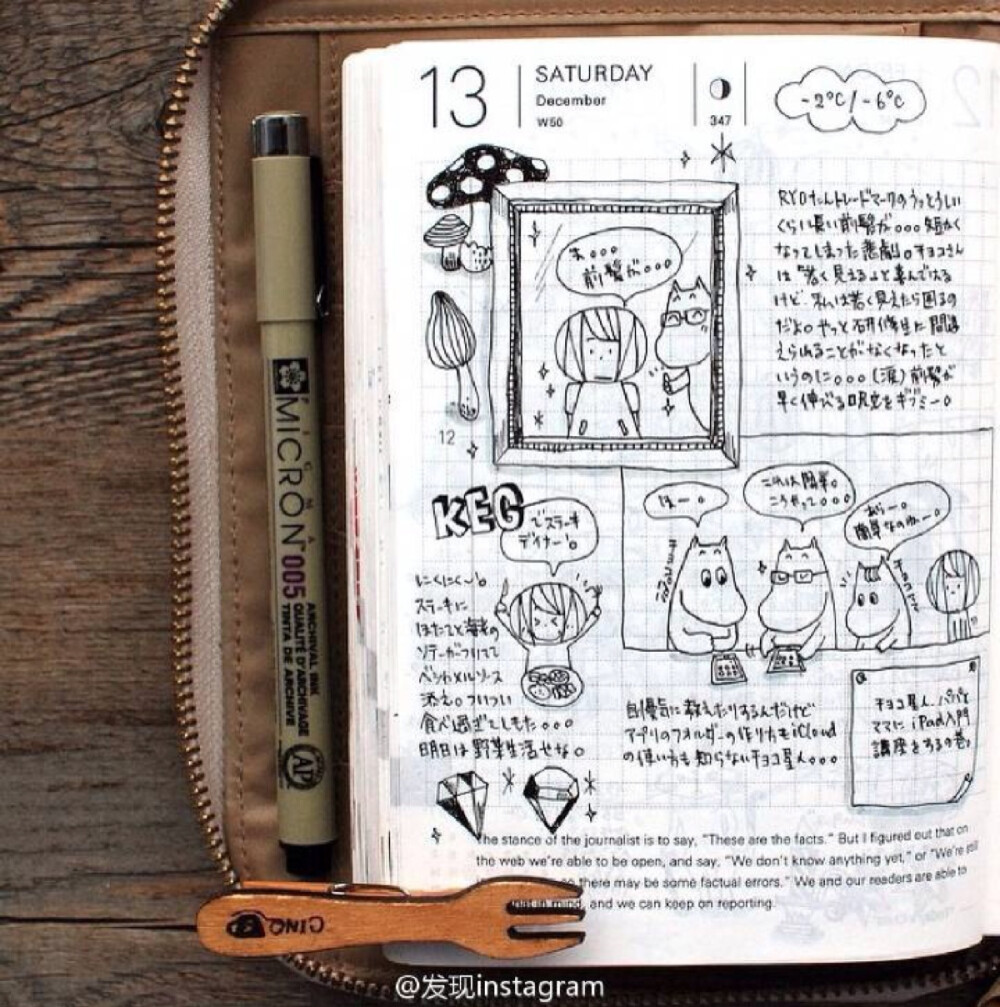 13
SATURDAY
December
W50
347
-2°C/-6°C
RYOたんトレードマークのうっとうしい
くらい長い前髪が。。。短かく
なってしまった悲劇。チョコさん
は「若く見える」と喜んでいる
けど、私は若く見えたら困るの
だよ。やっと研修生に間違
えられることがなくなったと
いうのに。。。(涙)前髪が
早く伸びる呪文をギブミー。
ま。。。
前髪が。。。
12
KEG
でステーキ
ディナー!。
にくにく~!。
ステーキに
ほたてと海老の
ソテーがついてて
ベシャメルソース
添え。ついつい
食べ過ぎてしもた。。。
明日は野菜生活せな。
ほー。
これは簡単。
こうやって。。。
あらー。
簡単なのねー。
自慢気に教えたりするんだけど
アプリのフォルダーの作り方もiCloud
の使い方も知らないチョコ星人。。。
チョコ星人、パパと
ママにiPad入門
講座をするの巻。
The stance of the journalist is to say, "These are the facts." But I figured out that on
the web we're able to be open, and say, "We don't know anything yet," or "We're still
so there may be some factual errors." We and our readers are able to
that in mind, and we can keep on reporting.
PIGMA
MICRON 005
ARCHIVAL INK
QUALITÉ D'ARCHIVAGE
TINTA DE ARCHIVE
AP
CINQ
@发现instagram